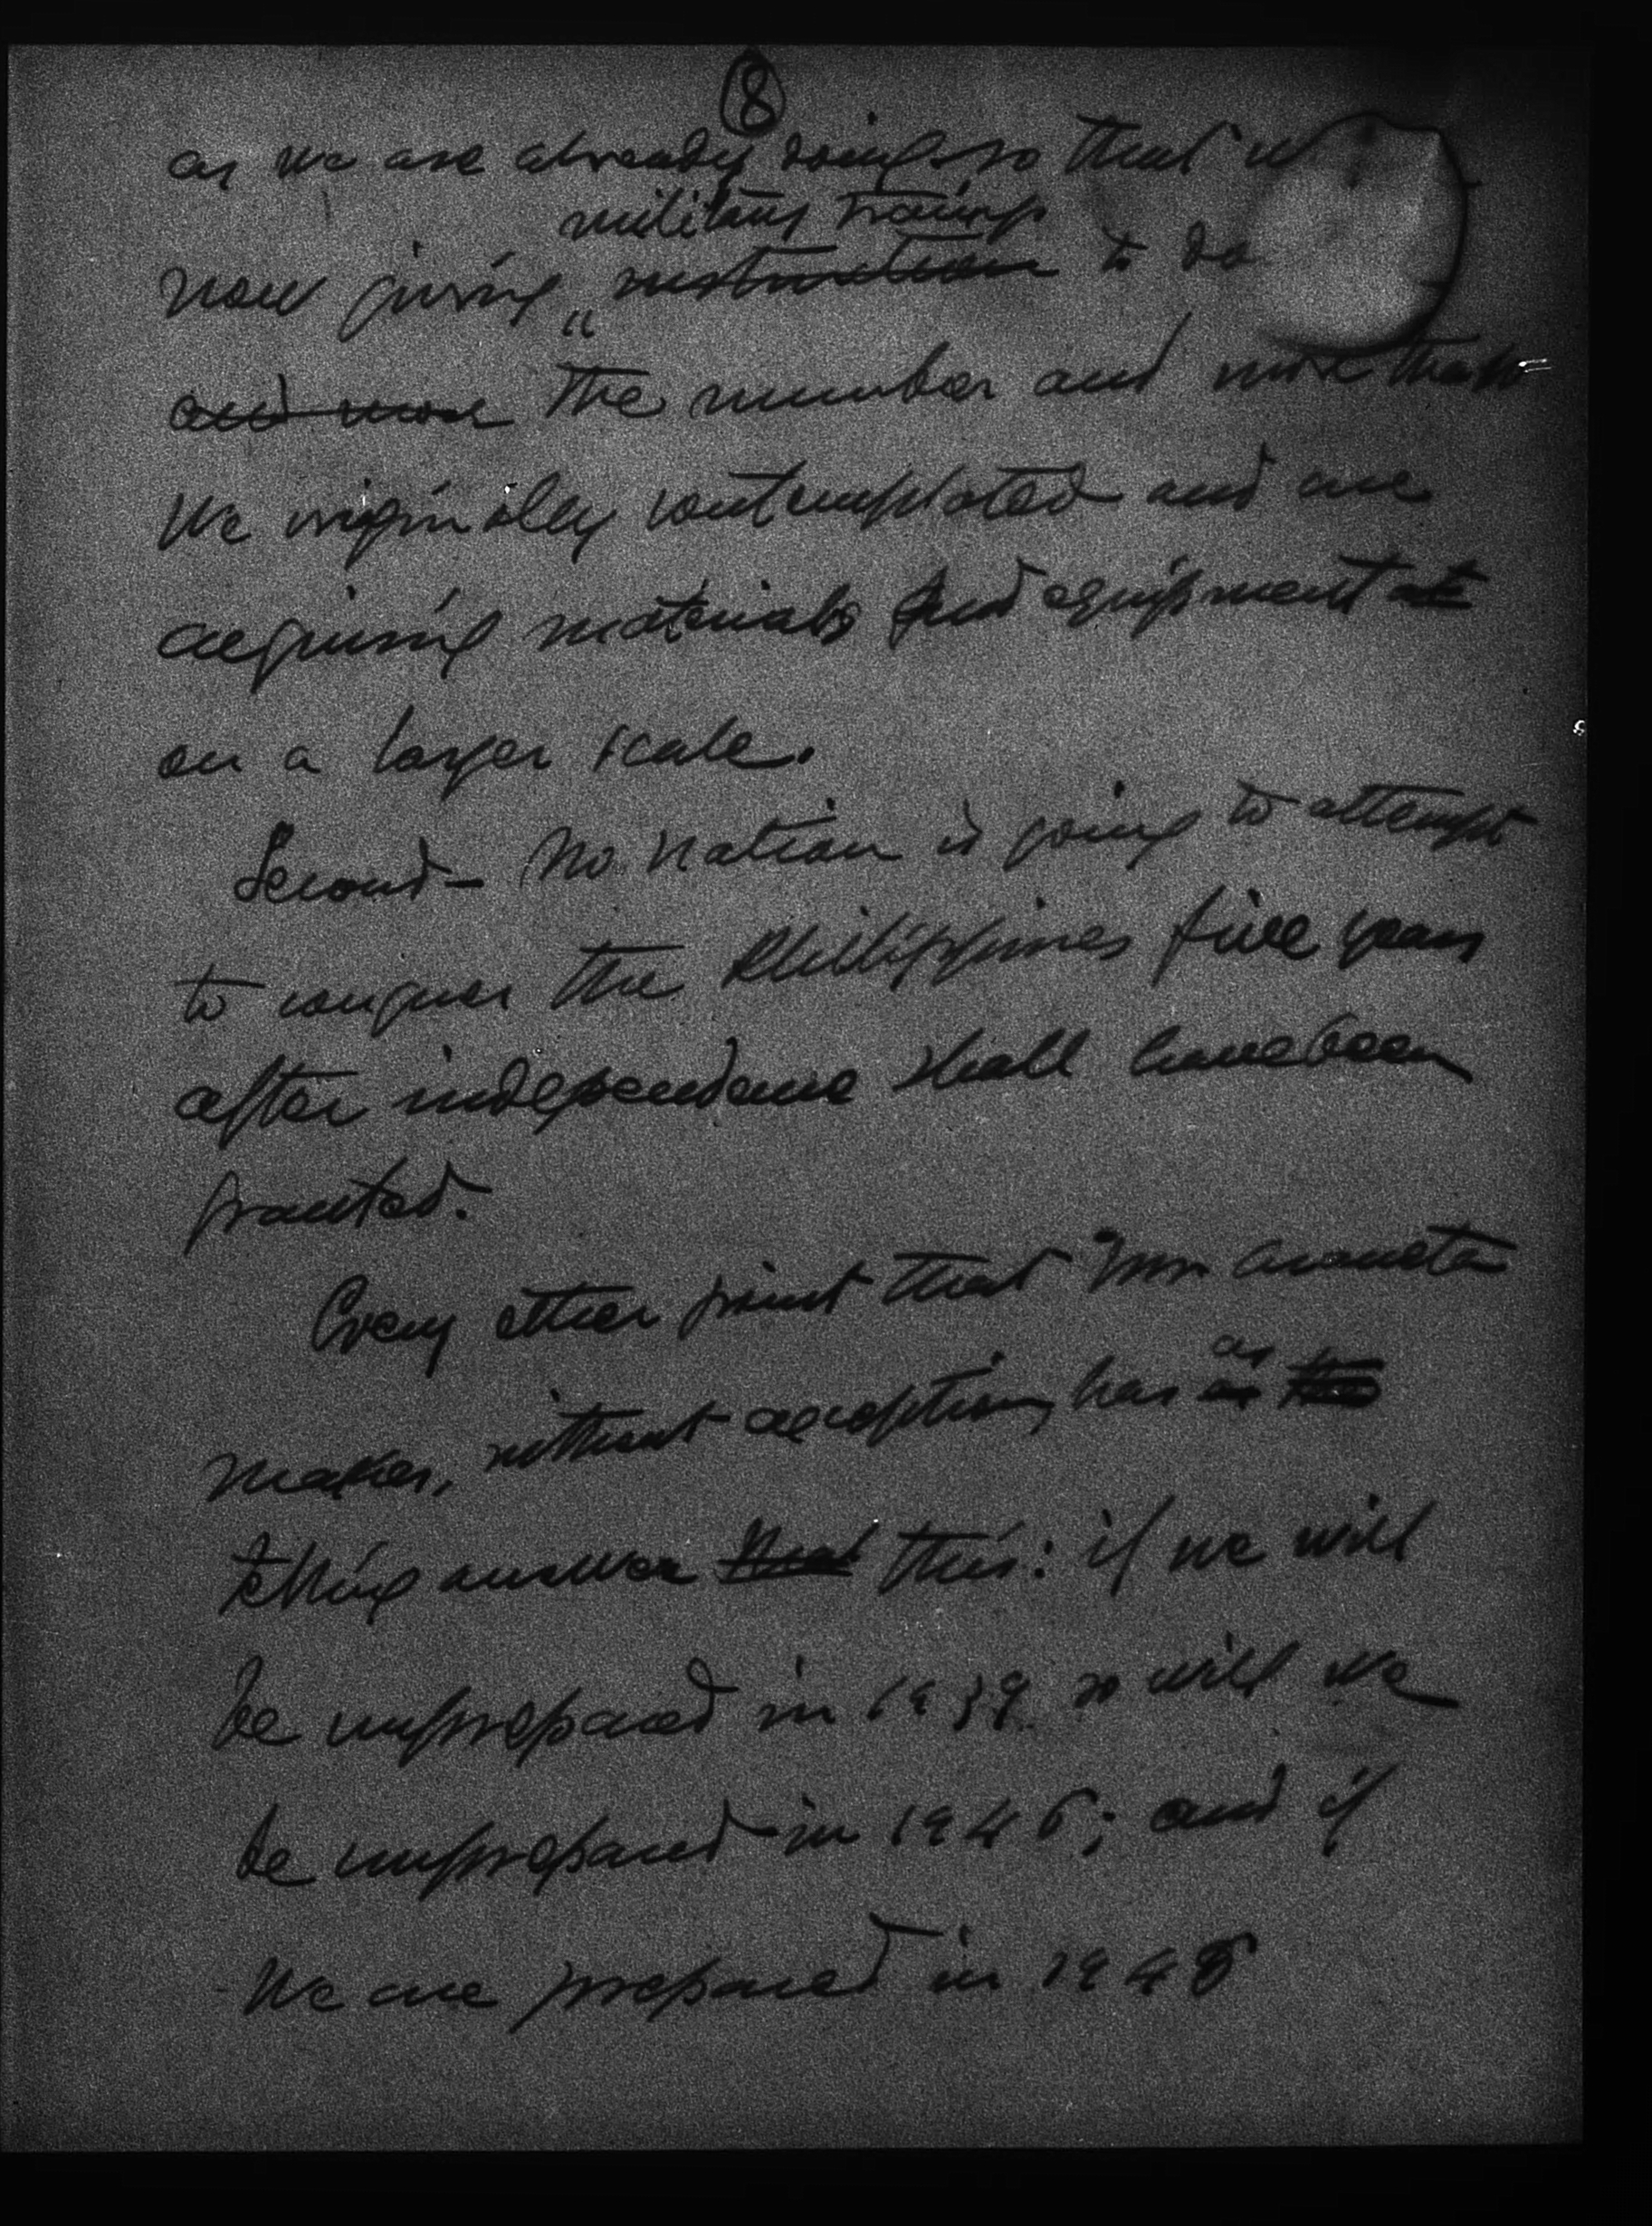 8
as we are already doing so that
military training
now giving instruction to do
and more the number and more than
we originally contemplated and are
acquiring materials and equipment at
on a larger scale.
Second - No nation is going to attempt
to conquer the Phillippines five years
after independence shall have been
granted.
Every other point that Mr. Araneta
as
makes, without exception, has as the
telling answer that this: if we will
be unprepared in 1939 so will we
be unprepared in 1946; and if
we are prepared in 1946